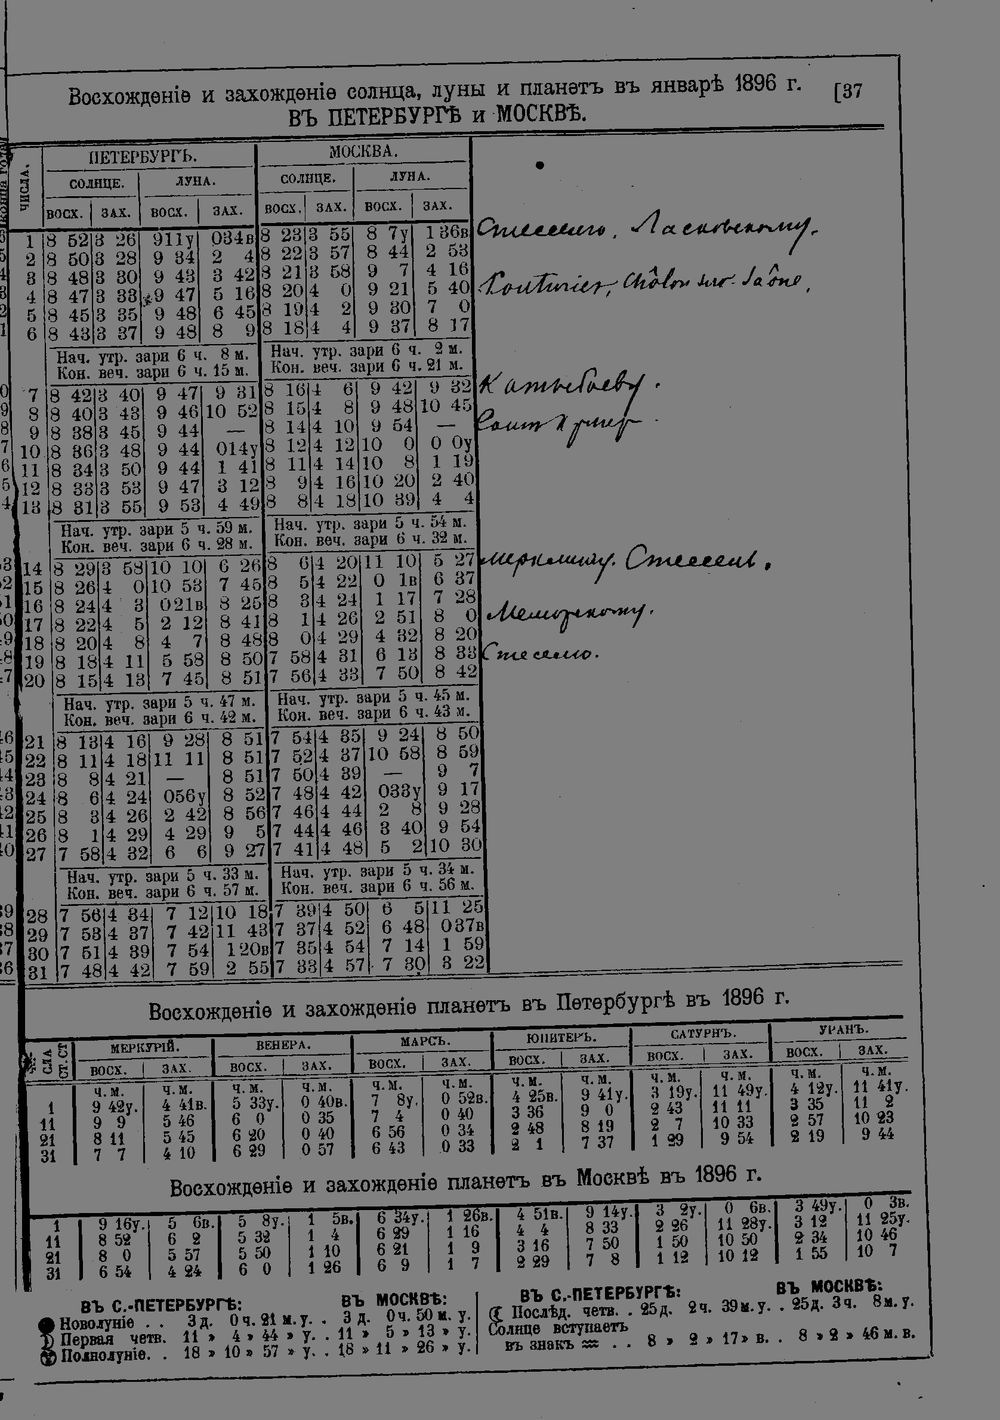 Восхожденіе и захожденіе солнца, луны и планетъ въ январѣ 1896 г. [37
ВЪ ПЕТЕРБУРГѢ и МОСКВѢ.
ЧИСЛА. ПЕТЕРБУРГЪ. МОСКВА.
СОЛНЦЕ. ЛУНА. СОЛНЦЕ. ЛУНА.
ВОСХ. ЗАХ. ВОСХ. ЗАХ. ВОСХ. ЗАХ. ВОСХ. ЗАХ.
1 8 52 3 26 9 11у 0 34в 8 23 3 55 8 7у 1 36в
2 8 50 3 28 9 34 2 4 8 22 3 57 8 44 2 53
3 8 48 3 30 9 43 3 42 8 21 3 58 9 7 4 16
4 8 47 3 33 9 47 5 16 8 20 4 0 9 21 5 40 Châlon sur Saône,
5 8 45 3 35 9 48 6 45 8 19 4 2 9 30 7 0
6 8 43 3 37 9 48 8 9 8 18 4 4 9 37 8 17
Нач. утр. зари 6 ч. 8 м. Нач. утр. зари 6 ч. 2 м.
Кон. веч. зари 6 ч. 15 м. Кон. веч. зари 6 ч. 21 м.
7 8 42 3 40 9 47 9 31 8 16 4 6 9 42 9 32
8 8 40 3 43 9 46 10 52 8 15 4 8 9 48 10 45
9 8 38 3 45 9 44 — 8 14 4 10 9 54 —
10 8 36 3 48 9 44 0 14у 8 12 4 12 10 0 0 0у
11 8 34 3 50 9 44 1 41 8 11 4 14 10 8 1 19
12 8 33 3 53 9 47 3 12 8 9 4 16 10 20 2 40
13 8 31 3 55 9 53 4 49 8 8 4 18 10 39 4 4
Нач. утр. зари 5 ч. 59 м. Нач. утр. зари 5 ч. 54 м.
Кон. веч. зари 6 ч. 28 м. Кон. веч. зари 6 ч. 32 м.
14 8 29 3 58 10 10 6 26 8 6 4 20 11 10 5 27
15 8 26 4 0 10 53 7 45 8 5 4 22 0 1в 6 37
16 8 24 4 3 0 21в 8 25 8 3 4 24 1 17 7 28
17 8 22 4 5 2 12 8 41 8 1 4 26 2 51 8 0
18 8 20 4 8 4 7 8 48 8 0 4 29 4 32 8 20
19 8 18 4 11 5 58 8 50 7 58 4 31 6 13 8 33
20 8 15 4 13 7 45 8 51 7 56 4 33 7 50 8 42
Нач. утр. зари 5 ч. 47 м. Нач. утр. зари 5 ч. 45 м.
Кон. веч. зари 6 ч. 42 м. Кон. веч. зари 6 ч. 43 м.
21 8 13 4 16 9 28 8 51 7 54 4 35 9 24 8 50
22 8 11 4 18 11 11 8 51 7 52 4 37 10 58 8 59
23 8 8 4 21 — 8 51 7 50 4 39 — 9 7
24 8 6 4 24 0 56у 8 52 7 48 4 42 0 33у 9 17
25 8 3 4 26 2 42 8 56 7 46 4 44 2 8 9 28
26 8 1 4 29 4 29 9 5 7 44 4 46 3 40 9 54
27 7 58 4 32 6 6 9 27 7 41 4 48 5 2 10 30
Нач. утр. зари 5 ч. 33 м. Нач. утр. зари 5 ч. 34 м.
Кон. веч. зари 6 ч. 57 м. Кон. веч. зари 6 ч. 56 м.
28 7 56 4 34 7 12 10 18 7 39 4 50 6 5 11 25
29 7 53 4 37 7 42 11 43 7 37 4 52 6 48 0 37в
30 7 51 4 39 7 54 1 20в 7 35 4 54 7 14 1 59
31 7 48 4 42 7 59 2 55 7 33 4 57 7 30 3 22
Восхожденіе и захожденіе планетъ въ Петербургѣ въ 1896 г.
СЛА СТ. СТ МЕРКУРІЙ. ВЕНЕРА. МАРСЪ. ЮПИТЕРЪ. САТУРНЪ. УРАНЪ.
ВОСХ. ЗАХ. ВОСХ. ЗАХ. ВОСХ. ЗАХ. ВОСХ. ЗАХ. ВОСХ. ЗАХ. ВОСХ. ЗАХ.
ч. м. ч. м. ч. м. ч. м. ч. м. ч. м. ч. м. ч. м. ч. м. ч. м. ч. м. ч. м.
1 9 42у. 4 41в. 5 33у. 0 40в. 7 8у. 0 52в. 4 25в. 9 41у. 3 19у. 11 49у. 4 12у. 11 41у.
11 9 9 5 46 6 0 0 35 7 4 0 40 3 36 9 0 2 43 11 11 3 35 11 2
21 8 11 5 45 6 20 0 40 6 56 0 34 2 48 8 19 2 7 10 33 2 57 10 23
31 7 7 4 10 6 29 0 57 6 43 0 33 2 1 7 37 1 29 9 54 2 19 9 44
Восхожденіе и захожденіе планетъ въ Москвѣ въ 1896 г.
1 9 16у. 5 6в. 5 8у. 1 5в. 6 34у. 1 26в. 4 51в. 9 14у. 3 2у. 0 6в. 3 49у. 0 3в.
11 8 52 6 2 5 32 1 4 6 29 1 16 4 4 8 33 2 26 11 28у. 3 12 11 25у.
21 8 0 5 57 5 50 1 10 6 21 1 9 3 16 7 50 1 50 10 50 2 34 10 46
31 6 54 4 24 6 0 1 26 6 9 1 7 2 29 7 8 1 12 10 12 1 55 10 7
ВЪ С.-ПЕТЕРБУРГѢ: ВЪ МОСКВѢ:
Новолуніе . . 3 д. 0 ч. 21 м. у. . 3 д. 0 ч. 50 м. у.
Первая четв. 11 » 4 » 44 » у. . 11 » 5 » 13 » у.
Полнолуніе. . 18 » 10 » 57 » у. . 18 » 11 » 26 » у.
ВЪ С.-ПЕТЕРБУРГѢ: ВЪ МОСКВѢ:
Послѣд. четв. . 25 д. 2 ч. 39 м. у. . 25 д. 3 ч. 8 м. у.
Солнце вступаетъ
въ знакъ ♒ . . 8 » 2 » 17 » в. . 8 » 2 » 46 м. в.